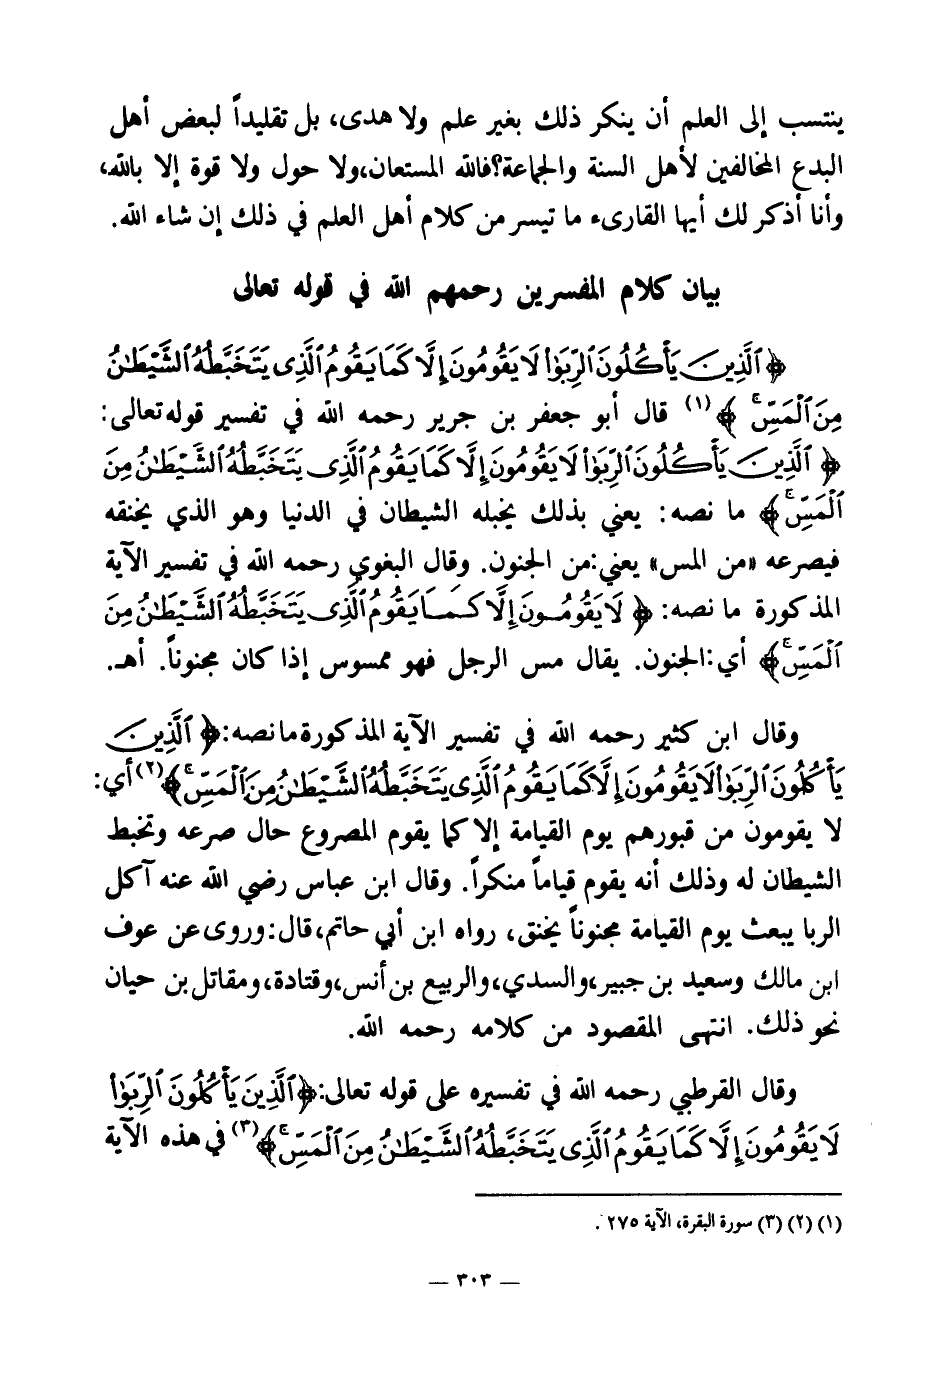 ينتسب إلى العلم أن ينكر ذلك بغير علم ولا هدى، بل تقليداً لبعض أهل
البدع المخالفين لأهل السنة والجماعة؟فالله المستعان،ولا حول ولا قوة إلا بالله،
وأنا أذكر لك أيها القارىء ما تيسر من كلام أهل العلم في ذلك إن شاء الله.
بيان كلام المفسرين رحمهم الله في قوله تعالى
﴿ ٱلَّذِينَ يَأۡكُلُونَ ٱلرِّبَوٰاْ لَا يَقُومُونَ إِلَّا كَمَا يَقُومُ ٱلَّذِى يَتَخَبَّطُهُ ٱلشَّيۡطَـٰنُ
مِنَ ٱلۡمَسِّۚ ﴾(١) قال أبو جعفر بن جرير رحمه الله في تفسير قوله تعالى:
﴿ ٱلَّذِينَ يَأۡكُلُونَ ٱلرِّبَوٰاْ لَا يَقُومُونَ إِلَّا كَمَا يَقُومُ ٱلَّذِى يَتَخَبَّطُهُ ٱلشَّيۡطَـٰنُ مِنَ
ٱلۡمَسِّۚ ﴾ ما نصه: يعني بذلك يخبله الشيطان في الدنيا وهو الذي يخنقه
فيصرعه «من المس» يعني:من الجنون. وقال البغوي رحمه الله في تفسير الآية
المذكورة ما نصه: ﴿ لَا يَقُومُونَ إِلَّا كَمَا يَقُومُ ٱلَّذِى يَتَخَبَّطُهُ ٱلشَّيۡطَـٰنُ مِنَ
ٱلۡمَسِّۚ ﴾ أي:الجنون. يقال مس الرجل فهو ممسوس إذا كان مجنوناً. أهـ.
وقال ابن كثير رحمه الله في تفسير الآية المذكورة ما نصه:﴿ ٱلَّذِينَ
يَأۡكُلُونَ ٱلرِّبَوٰاْ لَا يَقُومُونَ إِلَّا كَمَا يَقُومُ ٱلَّذِى يَتَخَبَّطُهُ ٱلشَّيۡطَـٰنُ مِنَ ٱلۡمَسِّۚ ﴾(٢) أي:
لا يقومون من قبورهم يوم القيامة إلا كما يقوم المصروع حال صرعه وتخبط
الشيطان له وذلك أنه يقوم قياماً منكراً. وقال ابن عباس رضي الله عنه آكل
الربا يبعث يوم القيامة مجنوناً يخنق، رواه ابن أبي حاتم،قال:وروى عن عوف
ابن مالك وسعيد بن جبير،والسدي،والربيع بن أنس،وقتادة،ومقاتل بن حيان
نحو ذلك. انتهى المقصود من كلامه رحمه الله.
وقال القرطبي رحمه الله في تفسيره على قوله تعالى:﴿ٱلَّذِينَ يَأۡكُلُونَ ٱلرِّبَوٰاْ
لَا يَقُومُونَ إِلَّا كَمَا يَقُومُ ٱلَّذِى يَتَخَبَّطُهُ ٱلشَّيۡطَـٰنُ مِنَ ٱلۡمَسِّۚ ﴾(٣) في هذه الآية
(١) (٢) (٣) سورة البقرة، الآية ٢٧٥.
— ٣٠٣ —